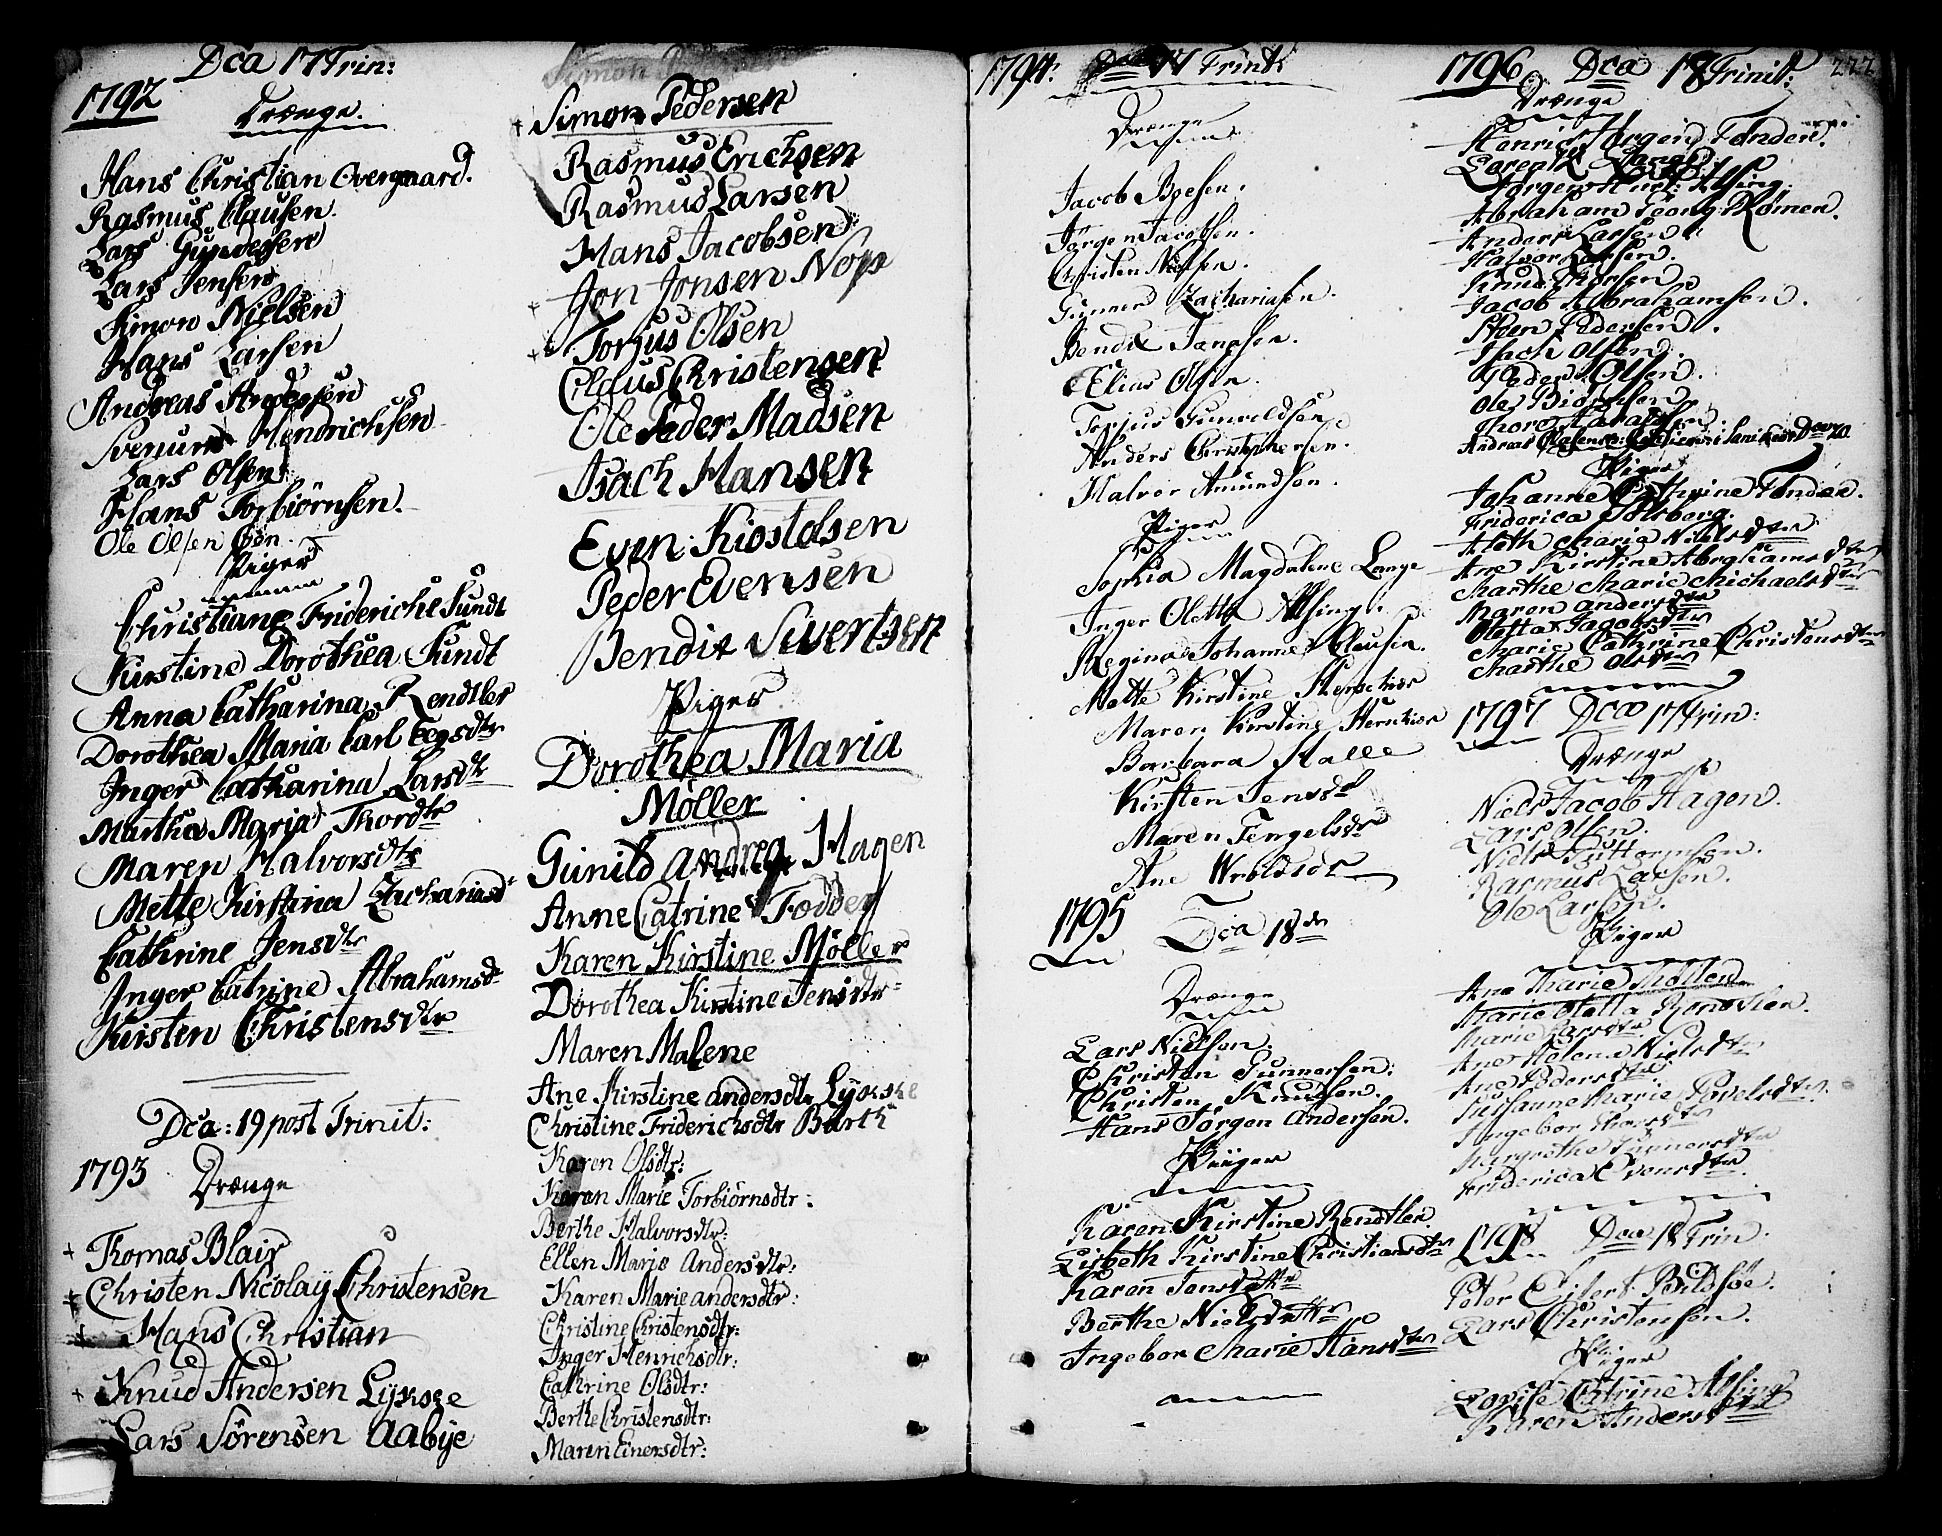 1792 Dca 17 Trin:
Drænge.
Hans Christian Overgaard.
Rasmus Clausen.
Lars Gundersen
Lars Jensen
Simon Nielsen
Hans Larsen
Andreas Andersen
Svenum Hendrichsen
Lars Olsen
Hans Torbiörnsen.
Ole Olsen
Piger
Christiane Frideriche Sundt
Kirstine Dorothea Sundt
Anna Catharina Rendtler
Dorothea Maria Carl Eegsdtr
Inger Catharina Larsdtr
Martha Maria Thordtr
Maren Halvorsdtr
Mette Kirstina Zachariasdtr
Cathrine Jensdtr
Inger Catrine Abrahamsdtr
Kirsten Christensdtr
Dca: 19 post Trinit:
1793 Drænge
+ Thomas Blair
+ Christen Nicolay Christensen
+ Hans Christian
+ Knud Andersen Lyksee
Lars Sörensen Aabye
Simon
+ Simon Pedersen
Rasmus Erichsen
Rasmus Larsen
Hans Jacobsen
+ Jon Jonsen Nop
+ Torjus Olsen
Claus Christensen
Ole Peder Madsen
Isach Hansen
Even Kiostolsen
Peder Evensen
Bendix Sivertsen
Piger
Dorothea Maria
Möller
Gunild Andrea Hagen
Anne Catrine Fodder
Karen Kirstine Möller
Dorothea Kirstine Jensdtr:
Maren Malene
Ane Kirstine andersdtr Lyksee
Christine Friderichsdtr Barth
Karen Olsdtr:
Karen Marie Torbiörnsdtr:
Berthe Halvorsdtr:
Ellen Maris Andersdtr:
Karen Marie andersdtr:
Christine Christensdtr:
Inger Henrichsdtr:
Cathrine Olsdtr:
Berthe Christensdtr:
Maren Einersdtr:
1794: Dca 17 Trinit
Drænge
Jacob Boesen.
Jörgen Jacobsen.
Christen Nielsen.
Gunner Zachariasen.
Bendix Jansen.
Elias Olsen
Torjus Gunvoldsen
Anders Christensen.
Halvor Amundsen.
Piger
Sophia Magdalene Lange
Inger Oletta Alsing.
Regina Johanne Clausen.
Mette Kirstine
Maren Kirstine
Barbara Kalle
Kirsten Jensdtr
Maren Tengelsdtr
Ane Wroldsdtr
1795 Dca 18de
Drænge
Lars Nielsen.
Christen Gunnersen:
Christen Knudsen.
Hans Jörgen Andersen.
Piiger
Karen Kirstine Rendtler.
Lisbeth Kirstine Christiansdtr
Karen Jensdttr
Berthe Nielsdttr
Ingebor Marie Hansdtr
1796 Dca 18 Trinit: 222
Drænge
Henric Jørgen Tønder.
Lorentz Lange
Jørgen Alsing.
Abraham Georg Römer.
Anders Larsen
Halvor Larsen.
Knud
Jacob Abrahamsen.
Peder Olsen.
Isach Olsen.
Ole Biørnsen
Andreas
Piger
Johanne Cathrine Tønder.
Friderica Solberg.
Aleth Maria Nielsdtr
Ane Kirstine Abrahamsdtr
Marthe Marie Michaelsdtr
Karen andersdtr
Oletta Jacobsdtr
Marie Cathrine Christensdtr
Marthe Olsdtr
1797 Dca 17 Trin:
Drænge
Niels Jacob Hagen.
Lars Olsen.
Niels Guttormsen.
Rasmus Larsen.
Ole Larsen.
Piger
Ane Marie Møller
Marie Oletta Rendtler.
Marie Larsdtr
Ane Helene Nielsdtr
Ane Pedersdtr
Susanne Marie Povelsdtr
Ingebor Thorsdtr
Margrethe Gunnersdtr
Friderica Evensdtr
1798 Dca 18 Trin.
Peter Eilert Bildsöe.
Lars Christensen.
Piger
Lovise Catrine Alsing
Karen Andersdtr